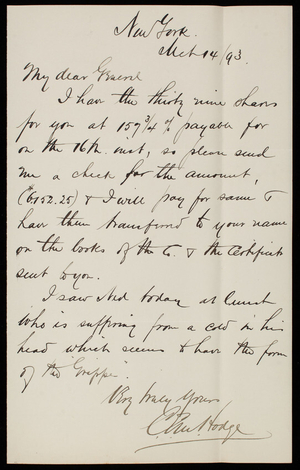 New York.
Mch 14/93.
My dear General
I have the thirty nine shares
for you at 157 3/4 % payable for
on the 16th. inst, so please send
me a check for the amount,
(6152.25) & I will pay for same &
have them transferred to your name
on the books of the Co. & the Certificate
sent to you.
I saw Ned today at lunch
who is suffering from a cold in his
head which seems to have the form
of the Grippe.
Very truly Yours
Hodge